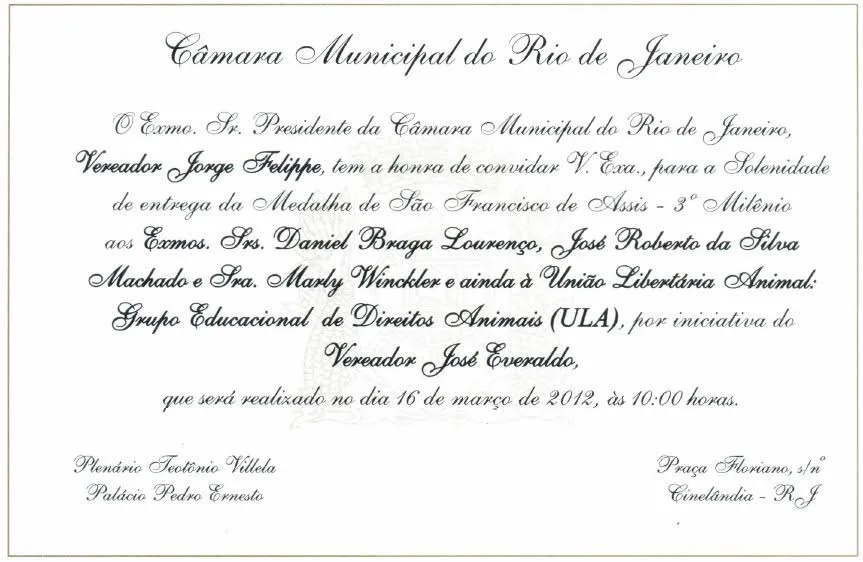 Câmara Municipal do Rio de Janeiro
O Exmo. Sr. Presidente da Câmara Municipal do Rio de Janeiro,
Vereador Jorge Felippe, tem a honra de convidar V. Exa., para a Solenidade
de entrega da Medalha de São Francisco de Assis - 3º Milênio
aos Exmos. Srs. Daniel Braga Lourenço, José Roberto da Silva
Machado e Sra. Marly Winckler e ainda à União Libertária Animal:
Grupo Educacional de Direitos Animais (ULA), por iniciativa do
Vereador José Everaldo,
que será realizado no dia 16 de março de 2012, às 10:00 horas.
Plenário Teotônio Villela
Palácio Pedro Ernesto
Praça Floriano, s/nº
Cinelândia - RJ